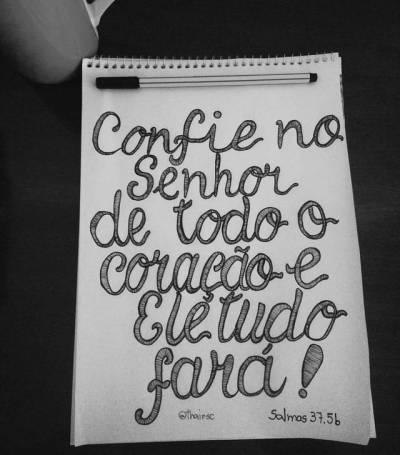 Confie no
Senhor
de todo o
coração e
Ele tudo
fará!
@thairsc Salmos 37.5b